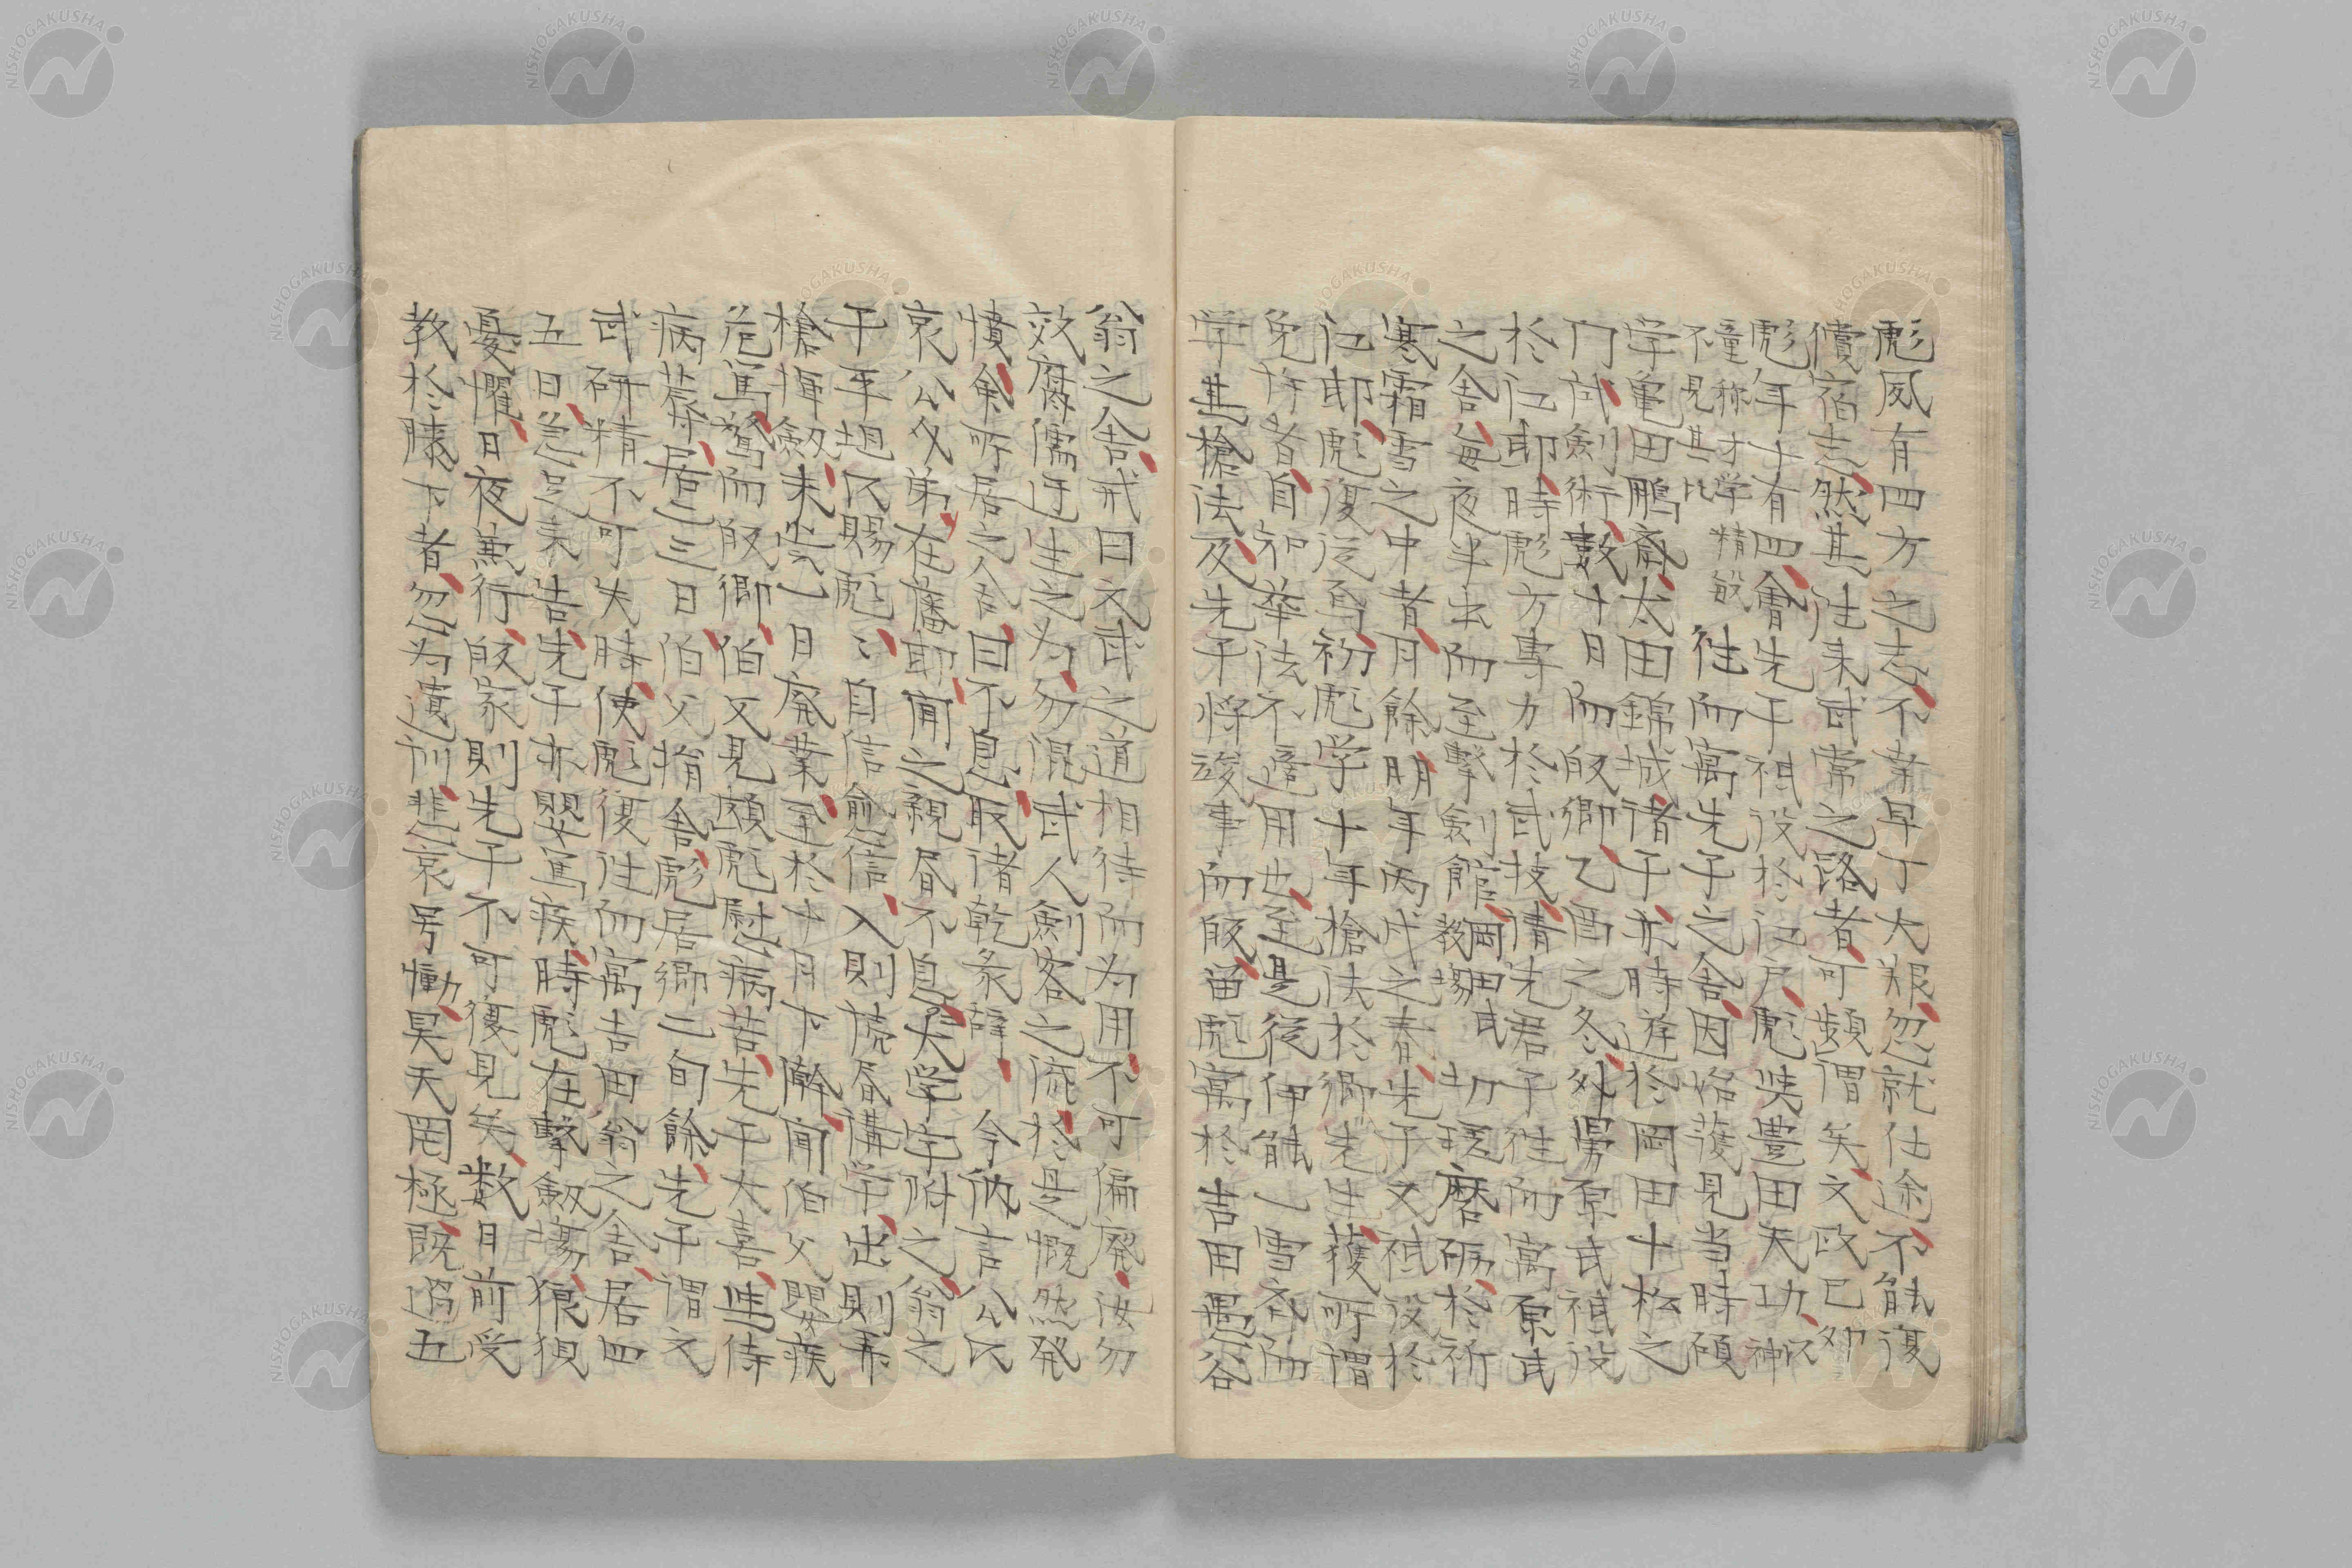 彪夙有四方之志不幸早丁大艱忽就仕途不能復
償宿志然其往来武常之路者可頻謂矣文政己卯
彪年十有四會先子祗役於江戸彪従豊田天功以神
童称才学精敏
不見其比
往而寓先子之舎因始獲見当時碩
学亀田鵬斎太田錦城諸子亦時遊於岡田十松之
門試剣術數十日而皈郷乙酉之冬外舅原氏祗役
於江邸時彪方專力於武技請先君子往而寓原氏
之舎毎夜半出而至擊剣館岡田氏
教場
切瑳磨砺於祈
寒霜雪之中者月餘明年丙戌之春先子又祗役於
江邸彪復従焉初彪学十年槍法於郷先生獲所謂
免許者自知華法不適用也至是従伊能一雪斎而
学其槍法及先子将竣事而皈留彪寓於吉田愚谷
翁之舎戒曰文武之道相待而為用不可偏廃汝勿
效腐儒迂生之為勿混武人剣客之流於是慨然発
憤矣所居之舎曰不息取諸乾象辞今納言公以
哀公介弟在藩邸聞之親書不息大字附之翁之
子平坦以賜彪々自信愈信入則読書講学出則弄
槍揮剣未嘗一日廃業至於十月下澣聞伯父嬰疾
危篤驚而皈郷伯父見頗彪慰病苦先子大喜進侍
病蓐居二三日伯父捐舎彪居郷二旬餘先子謂文
武研精不可失時使彪復往而寓吉田翁之舎居四
五日急足来告先子亦嬰篤疾時彪在擊剣場狼狽
憂懼日夜兼行皈家則先子不可復見矣数月前受
教於膝下者忽為遺訓悲哀号慟昊天罔極既過五
NISHOGAKUSHA